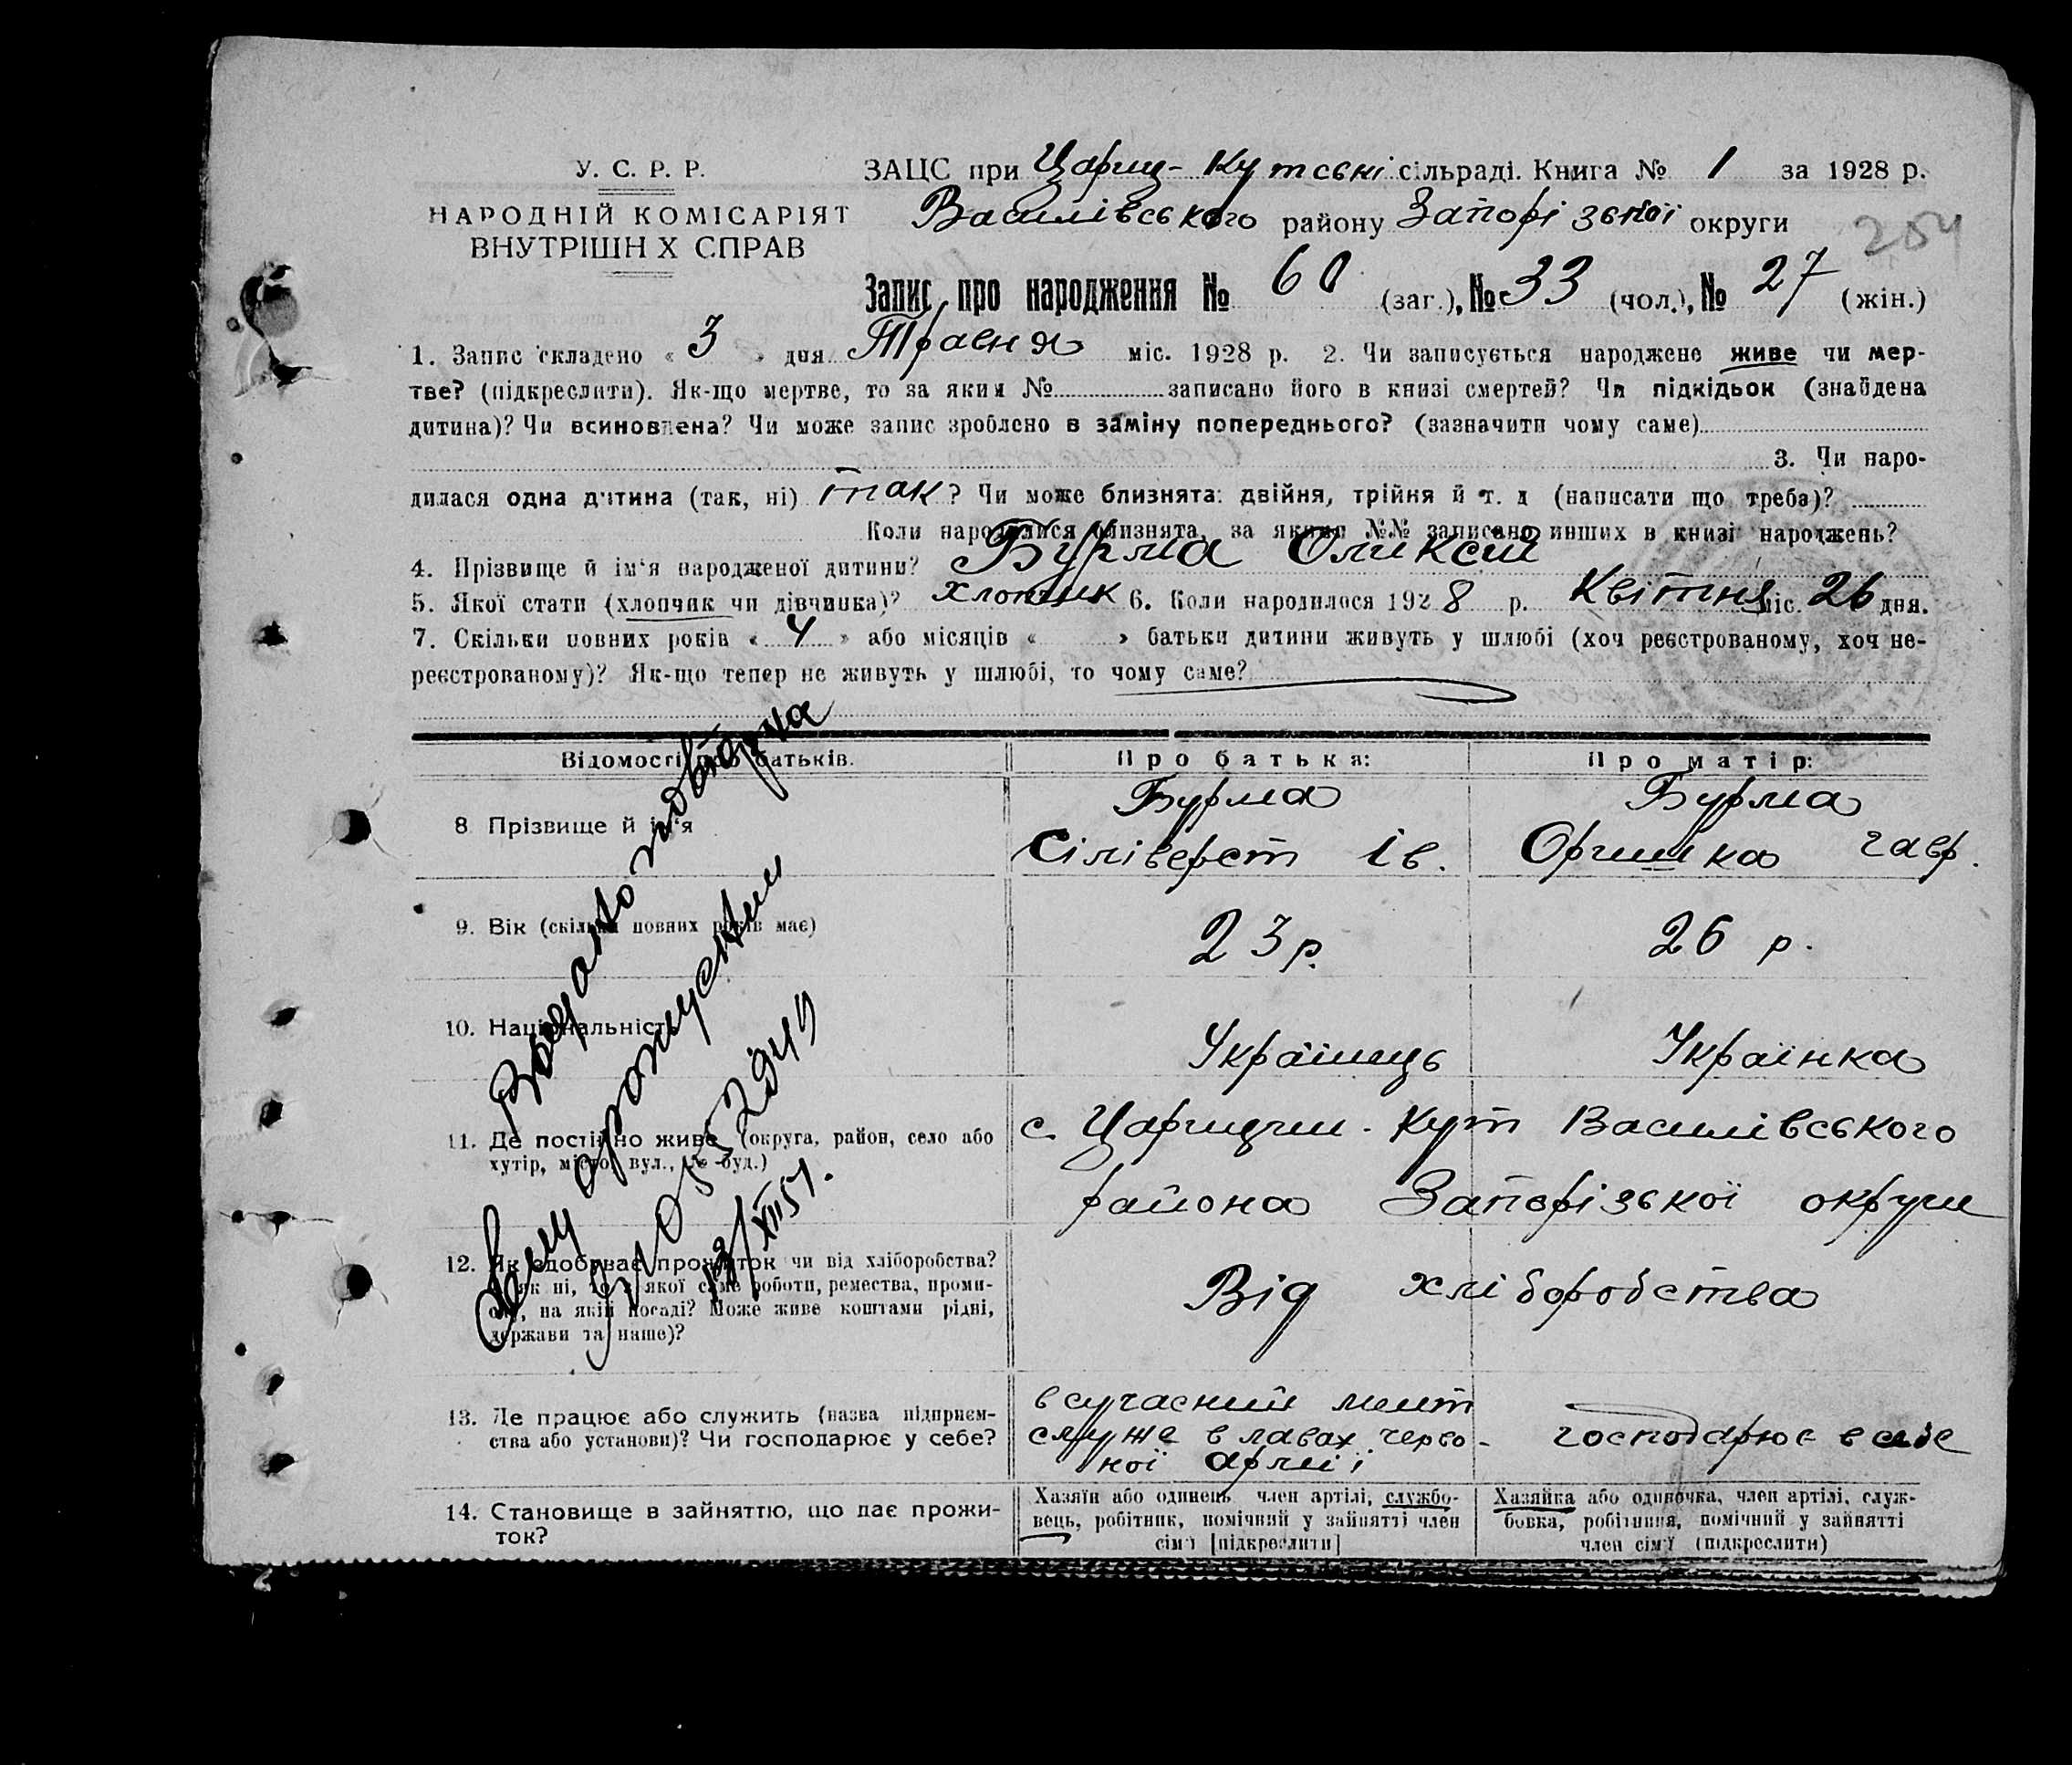 У. С. Р. Р.
НАРОДНІЙ КОМІСАРІЯТ
ВНУТРІШН Х СПРАВ
ЗАЦС при Цариц-Кутській сільраді. Книга № 1 за 1928 р.
Василівського району Запорізької округи
204
Запис про народження № 60 (заг.), № 33 (чол.), № 27 (жін.)
1. Запис складено « 3 » дня Травня міс. 1928 р. 2. Чи записується народжене живе чи мер-
тве? (підкреслити). Як-що мертве, то за яким № записано його в книзі смертей? Чи підкідьок (знайдена
дитина)? Чи всиновлена? Чи може запис зроблено в заміну попереднього? (зазначити чому саме)
3. Чи наро-
дилася одна дитина (так, ні) так ? Чи може близнята: двійня, трійня й т. д (написати що треба)?
Коли народилися близнята, за якими №№ записано инших в книзі народжень?
4. Прізвище й ім'я народженої дитини? Бурма Оликсій
5. Якої стати (хлопчик чи дівчинка)? хлопчик 6. Коли народилося 1928 р. Квітня міс. 26 дня.
7. Скільки повних років « 4 » або місяців « » батьки дитини живуть у шлюбі (хоч реєстрованому, хоч не-
реєстрованому)? Як-що тепер не живуть у шлюбі, то чому саме?
Відомості про батьків. Про батька: Про матір:
8 Прізвище й ім'я
Бурма
Сіліверст Ів.
Бурма
Оришка Гавр.
9. Вік (скільки повних років має)
23 р.
26 р.
10. Національність
Українець
Українка
11. Де постійно живе (округа, район, село або
хутір, місто, вул., № буд.)
с. Царицин-Кут Василівського
района Запорізької округи
12. Як здобуває прожиток чи від хліборобства?
Як ні, то з якої саме роботи, ремества, проми-
слу, на якій посаді? Може живе коштами рідні,
держави та инше)?
Від хліборобства
13. Де працює або служить (назва підприєм-
ства або установи)? Чи господарює у себе?
в сучасний мент
служе в лавах черво-
ної армії
господарює в себе
14. Становище в зайняттю, що дає прожи-
ток?
Хазяїн або одинець член артілі, службо-
вець, робітник, помічний у зайнятті член
сім'ї [підкреслити]
Хазяйка або одиночка, член артілі, служ-
бовка, робітниця, помічний у зайнятті
член сім'ї (підкреслити)
Видано повторна